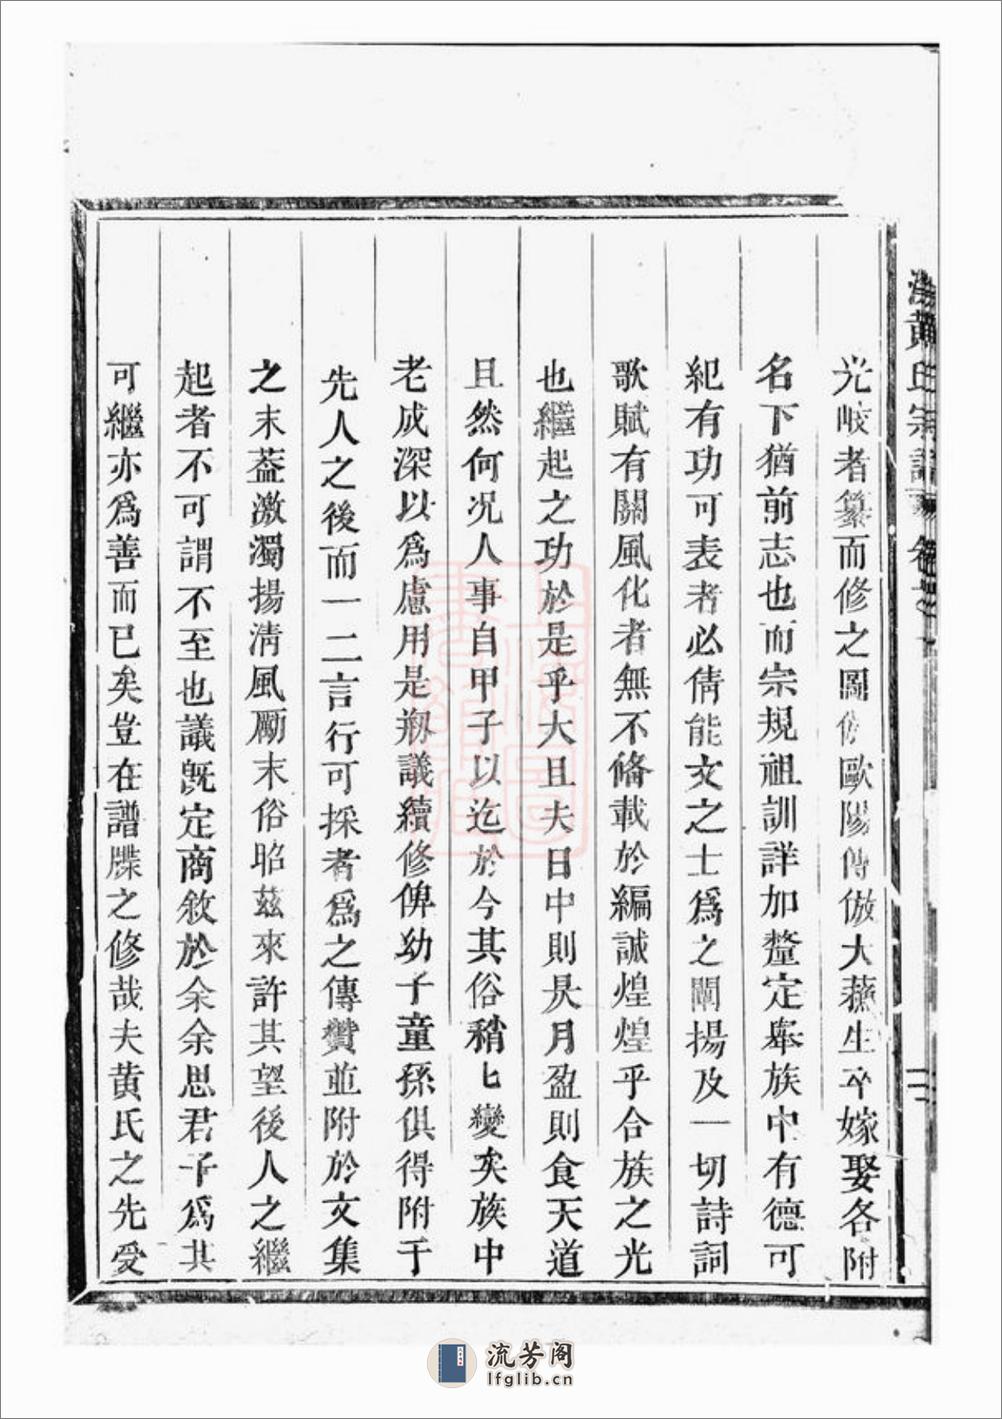 黄氏宗譜 卷
光岐者纂而修之圖倣歐陽傳倣大蘇生卒嫁娶各附
名下猶前志也而宗規祖訓詳加釐定舉族中有德可
紀有功可表者必倩能文之士爲之闡揚及一切詩詞
歌賦有關風化者無不偹載於編誠煌煌乎合族之光
也繼起之功於是乎大且夫日中則昃月盈則食天道
且然何况人事自甲子以迄於今其俗稍七變矣族中
老成深以爲慮用是剏議續修俾幼子童孫俱得附于
先人之後而一二言行可採者爲之傳贊並附於文集
之末葢激濁揚清風勵末俗昭茲來許其望後人之繼
起者不可謂不至也議旣定商敘於余余思君子爲其
可繼亦爲善而已矣豈在譜牒之修哉夫黄氏之先受
上海圖書館藏
流芳阁
lfglib.cn